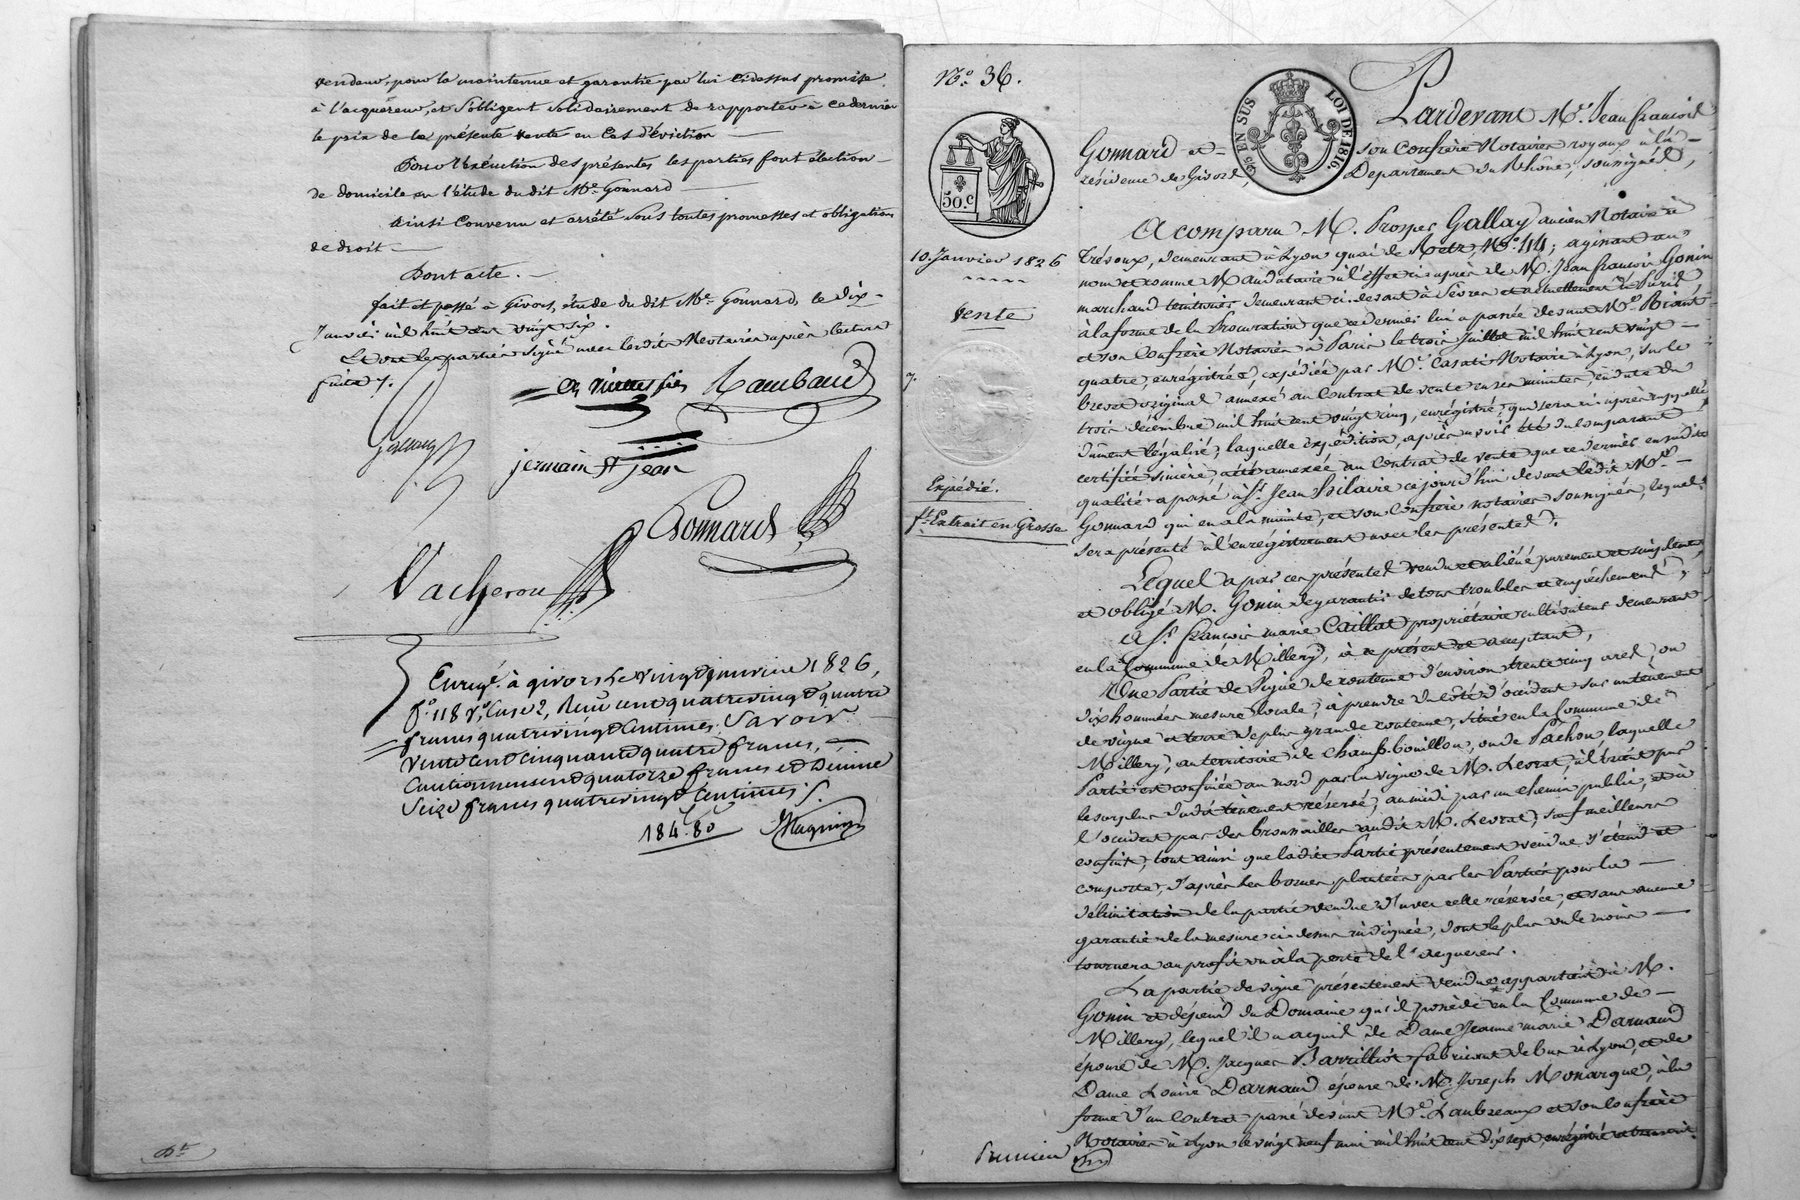 vendeur, pour la maintenue et garantie par lui cidessus promise
à l'acquéreur, et s'obligent solidairement de rapporter à ce dernier
le prix de la présente vente en cas d'éviction
Pour l'exécution des présentes les parties font élection
de domicile en l'étude du dit Me. Gonnard
Ainsi convenu et arrêté sous toutes promesses et obligations
de droit
Dont acte.
fait et passé à Givors, étude du dit Me. Gonnard, le dix
Janvier mil huit cent vingt six.
Et ont les parties signé avec lesdits Notaires après lecture
faite /.
Rambaud
jermain St jean
Gonnard
Vacheron
Enregé. à givors le vingt janvier 1826,
fo. 118 vo. Case 2, Reçu cent quatrevingt quatre
francs quatrevingt Centimes, Savoir
vente cent cinquante quatre francs,
Cautionnement quatorze francs et Dixime
Seize francs quatrevingt Centimes
184. 80
No. 36.
50.c
25 EN SUS
LOI DE 1816.
10. Janvier 1826
Vente
Expédié.
ft. Extrait en Grosse
Pardevant Me. Jean françois
Gonnard et son Confrère Notaires royaux à la
résidence de Givors, Département du Rhône, soussignés,
A comparu M. Prosper Gallay ancien Notaire à
Trévoux, demeurant à Lyon quai de Retz, No. 114; agissant au
nom et comme Mandataire à l'effet ci-après de M. Jean françois Gonin
marchand teinturier demeurant ci-devant à Sèvres et actuellement à Paris
à la forme de la Procuration que ce dernier lui a passée devant Me.
et son Confrère Notaires à Paris le trois Juillet mil huit cent vingt
quatre, enregistrée, expédiée par Me. Casati Notaire à Lyon, sur le
brevet original annexé au Contrat de vente en ses minutes, en date du
trois décembre mil huit cent vingt cinq, enregistré, qui sera ci après rappellé
dûment légalisé; laquelle expédition, après avoir été du comparant
certifiée sincère, a été annexée au Contrat de vente que ce dernier en sa dite
qualité a passé à St. Jean hilaire ce jourd'hui devant ledit Me.
Gonnard qui en a la minute, et son Confrère notaires soussignés, lequel
sera présenté à l'enrégistrement avec les présentes.
Lequel a par ces présentes vendu et aliéné purement et simplement
et obligé M. Gonin de garantir de tous troubles et empêchements,
à Sr. françois marie Caillat propriétaire cultivateur demeurant
en la Commune de Millery, à ce présent et acceptant,
Une Partie de Vigne de contenue d'environ trente cinq ares, ou
dix hommées mesure locale, à prendre du côté d'occident sur un tènement
de vigne et terre de plus grande contenue, situé en la Commune de
Millery, au territoire de Champ-bouillon, ou de Pachon laquelle
Partie est confinée au nord par la vigne de M. Levrat, à l'orient par
le surplus dudit tènement réservé, au midi par un chemin public, et à
l'occident par des brousailles audit M. Levrat, sauf meilleurs
confins, tout ainsi que ladite Partie présentement vendue s'étend et
comporte, d'après les bornes plantées par les Parties pour la
délimitation de la partie vendue d'avec celle réservée, et sans aucune
garantie de la mesure ci-dessus indiquée, dont le plus ou le moins
tournera au profit ou à la perte de l'Acquéreur.
La partie de vigne présentement vendue appartient à M.
Gonin et dépend du Domaine qu'il possède en la Commune de
Millery, lequel il a acquis de Dame Jeanne marie Darnaud
épouse de M. Jacques Barrilliot fabricant de bas à Lyon, et de
Dame Louise Darnaud épouse de M. Joseph Monarque, à la
forme d'un Contrat passé devant Me. Laubreaux et son Confrère
Notaires à Lyon le vingt neuf mai mil huit cent dix sept, enrégistré et transcrit.